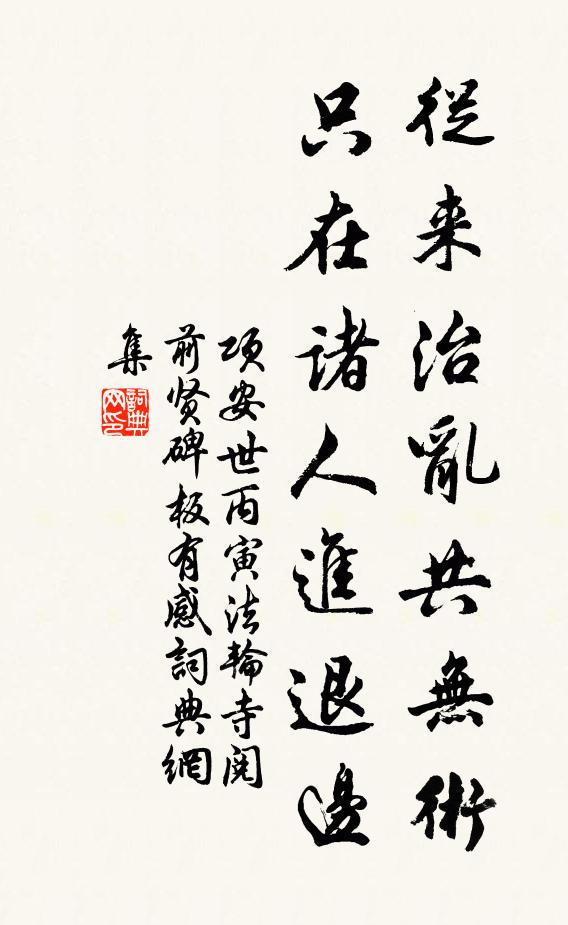 從来治亂共無術
只在諸人進退邊
項安世丙寅法輪寺閱
前贤碑板有感詞典網
集
詞典
网印